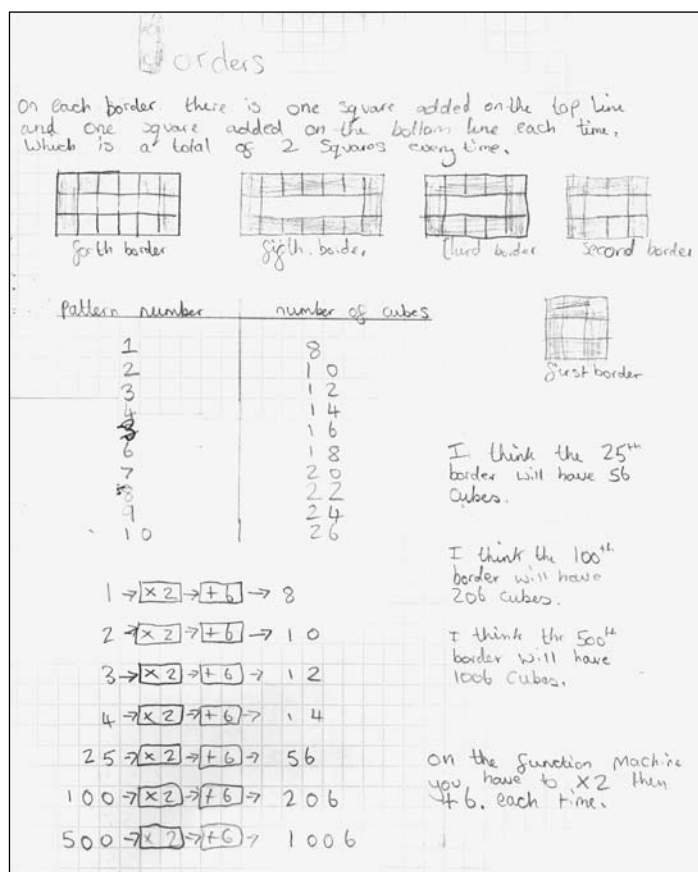 Borders
On each border there is one square added on the top line
and one square added on the bottom line each time.
Which is a total of 2 squares every time.
forth border
fifth. border
third border
second border
first border
pattern number number of cubes
1 8
2 10
3 12
4 14
5 16
6 18
7 20
8 22
9 24
10 26
I think the 25th
border will have 56
cubes.
I think the 100th
border will have
206 cubes.
I think the 500th
border will have
1006 cubes.
1 → ×2 → +6 → 8
2 → ×2 → +6 → 10
3 → ×2 → +6 → 12
4 → ×2 → +6 → 14
25 → ×2 → +6 → 56
100 → ×2 → +6 → 206
500 → ×2 → +6 → 1006
on the function machine
you have to ×2 then
+6. each time.